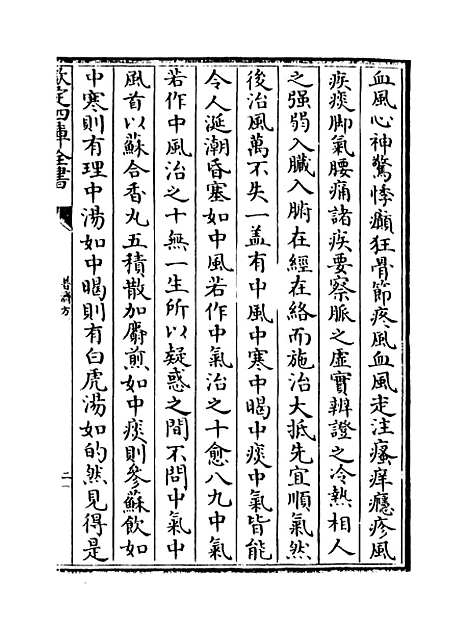 血風心神驚悸癲狂骨節疼風血風走注瘙痒癮疹風
疾痰脚氣腰痛諸疾要察脈之虛實辨證之冷熱相人
之强弱入臟入腑在經在絡而施治大抵先宜順氣然
後治風萬不失一盖有中風中寒中暍中痰中氣皆能
令人涎潮昏塞如中風若作中氣治之十愈八九中氣
若作中風治之十無一生所以疑惑之間不問中氣中
風首以蘇合香丸五積散加麝煎如中痰則參蘇飲如
中寒則有理中湯如中暍則有白虎湯如的然見得是
欽定四庫全書
普濟方